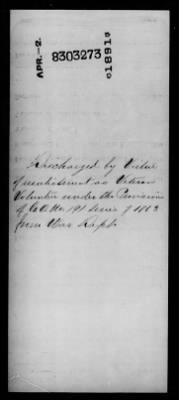 APR.-2.
8303273
1891
Discharged by Virtue
of reenlistment as Veteran
Volunteer under the Provisions
of G.O. No. 191 Series of 1863
from War Dept.